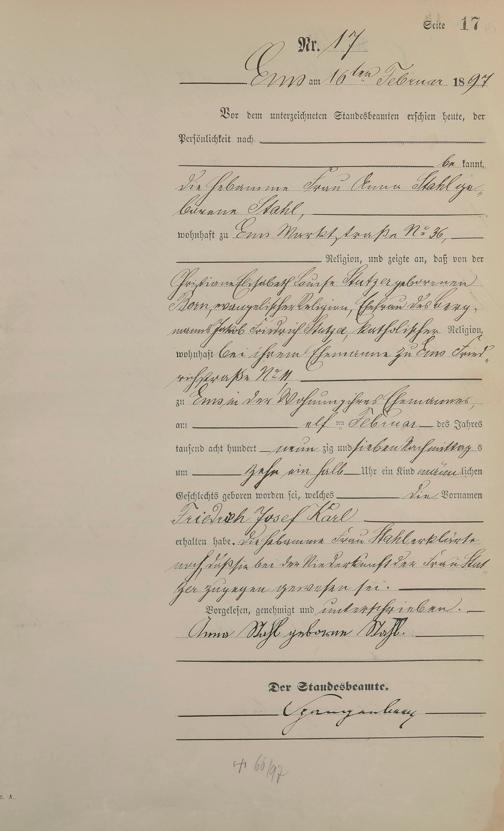 Seite 17
Nr. 17
Ems am 16ten Februar 1897
Vor dem unterzeichneten Standesbeamten erschien heute, der
Persönlichkeit nach
be kannt,
die Hebamme Frau Anna Stahl ge-
borene Stahl,
wohnhaft zu Ems Marktstraße No 36,
Religion, und zeigte an, daß von der
Christiane Elisabeth Luise Statzer geborenen
Born, evangelischer Religion, Ehefrau des Berg-
manns Jakob Friedrich Statzer, katholischer Religion,
wohnhaft bei ihrem Ehemanne zu Ems Fried-
richstraße No 11
zu Ems in der Wohnung ihres Ehemannes,
am elf ten Februar des Jahres
tausend acht hundert neun zig und sieben Nachmittags
um zehn ein halb Uhr ein Kind männlichen
Geschlechts geboren worden sei, welches die Vornamen
Friedrich Josef Karl
erhalten habe. Die Hebamme Frau Stahl erklärte
noch daß sie bei der Niederkunft der Frau Stat-
zer zugegen gewesen sei.
Vorgelesen, genehmigt und unterschrieben.
Anna Stahl geborne Stahl.
Der Standesbeamte.
Spangenberg